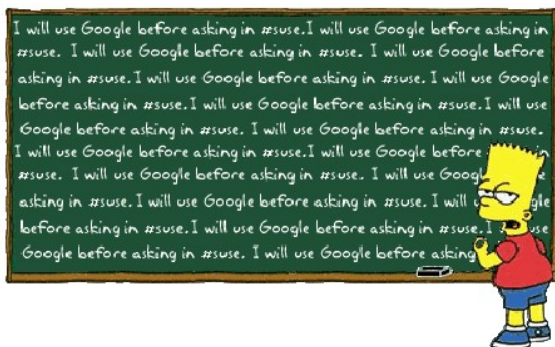 I will use Google before asking in #suse.I will use Google before asking in
#suse. I will use Google before asking in #suse. I will use Google before
asking in #suse. I will use Google before asking in #suse. I will use Google
before asking in #suse. I will use Google before asking in #suse. I will use
Google before asking in #suse. I will use Google before asking in #suse.
I will use Google before asking in #suse.I will use Google before in
#suse. I will use Google before asking in #suse. I will use
asking in #suse. I will use Google before asking in #suse. I will
before asking in #suse. I will use Google before asking in #suse. I use
Google before asking in #suse. I will use Google before asking